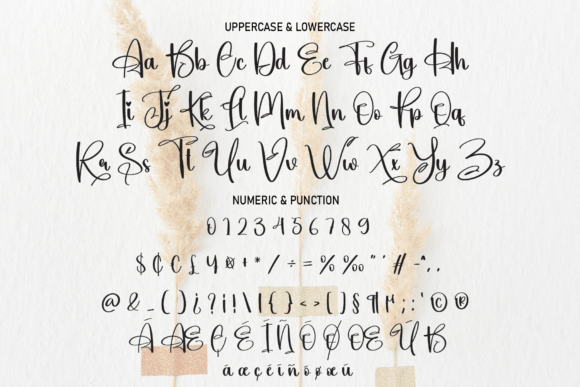 UPPERCASE & LOWERCASE
Aa Bb Cc Dd Ee Ff Gg Hh
Ii Jj Kk Ll Mm Nn Oo Pp Qq
Rr Ss Tt Uu Vv Ww Xx Yy Zz
NUMERIC & PUNCTION
0 1 2 3 4 5 6 7 8 9
$ ¢ € £ ¥ ¤ + * / ÷ = % ‰ " ' # - ^ . ,
@ & _ ( ) ¿ ? ¡ ! \ | { } < > [ ] § ¶ µ ; : ' © ®
Á Æ Ç É Í Ñ Ó Ø Œ Ú ß
á æ ç é í ñ ó ø œ ú